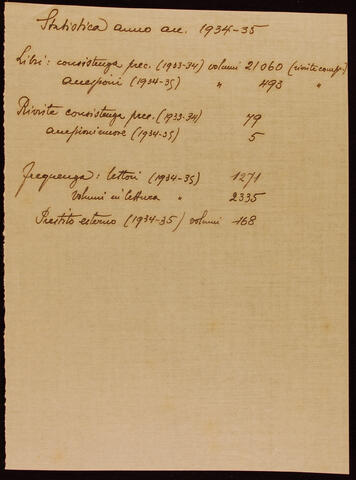 Statistica anno acc. 1934-35
Libri: consistenza prec. (1933-34) volumi 21060 (riviste comp.)
accessioni (1934-35) " 493 "
Riviste consistenza prec. (1933-34) 79
accessioni nuove (1934-35) 5
Frequenza: lettori (1934-35) 1271
volumi in lettura " 2335
Prestito esterno (1934-35) volumi 168